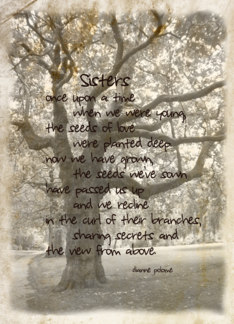 Sisters
once upon a time
when we were young,
the seeds of love
were planted deep.
now we have grown,
the seeds we've sown
have passed us up
and we recline
in the curl of their branches,
sharing secrets and
the view from above.